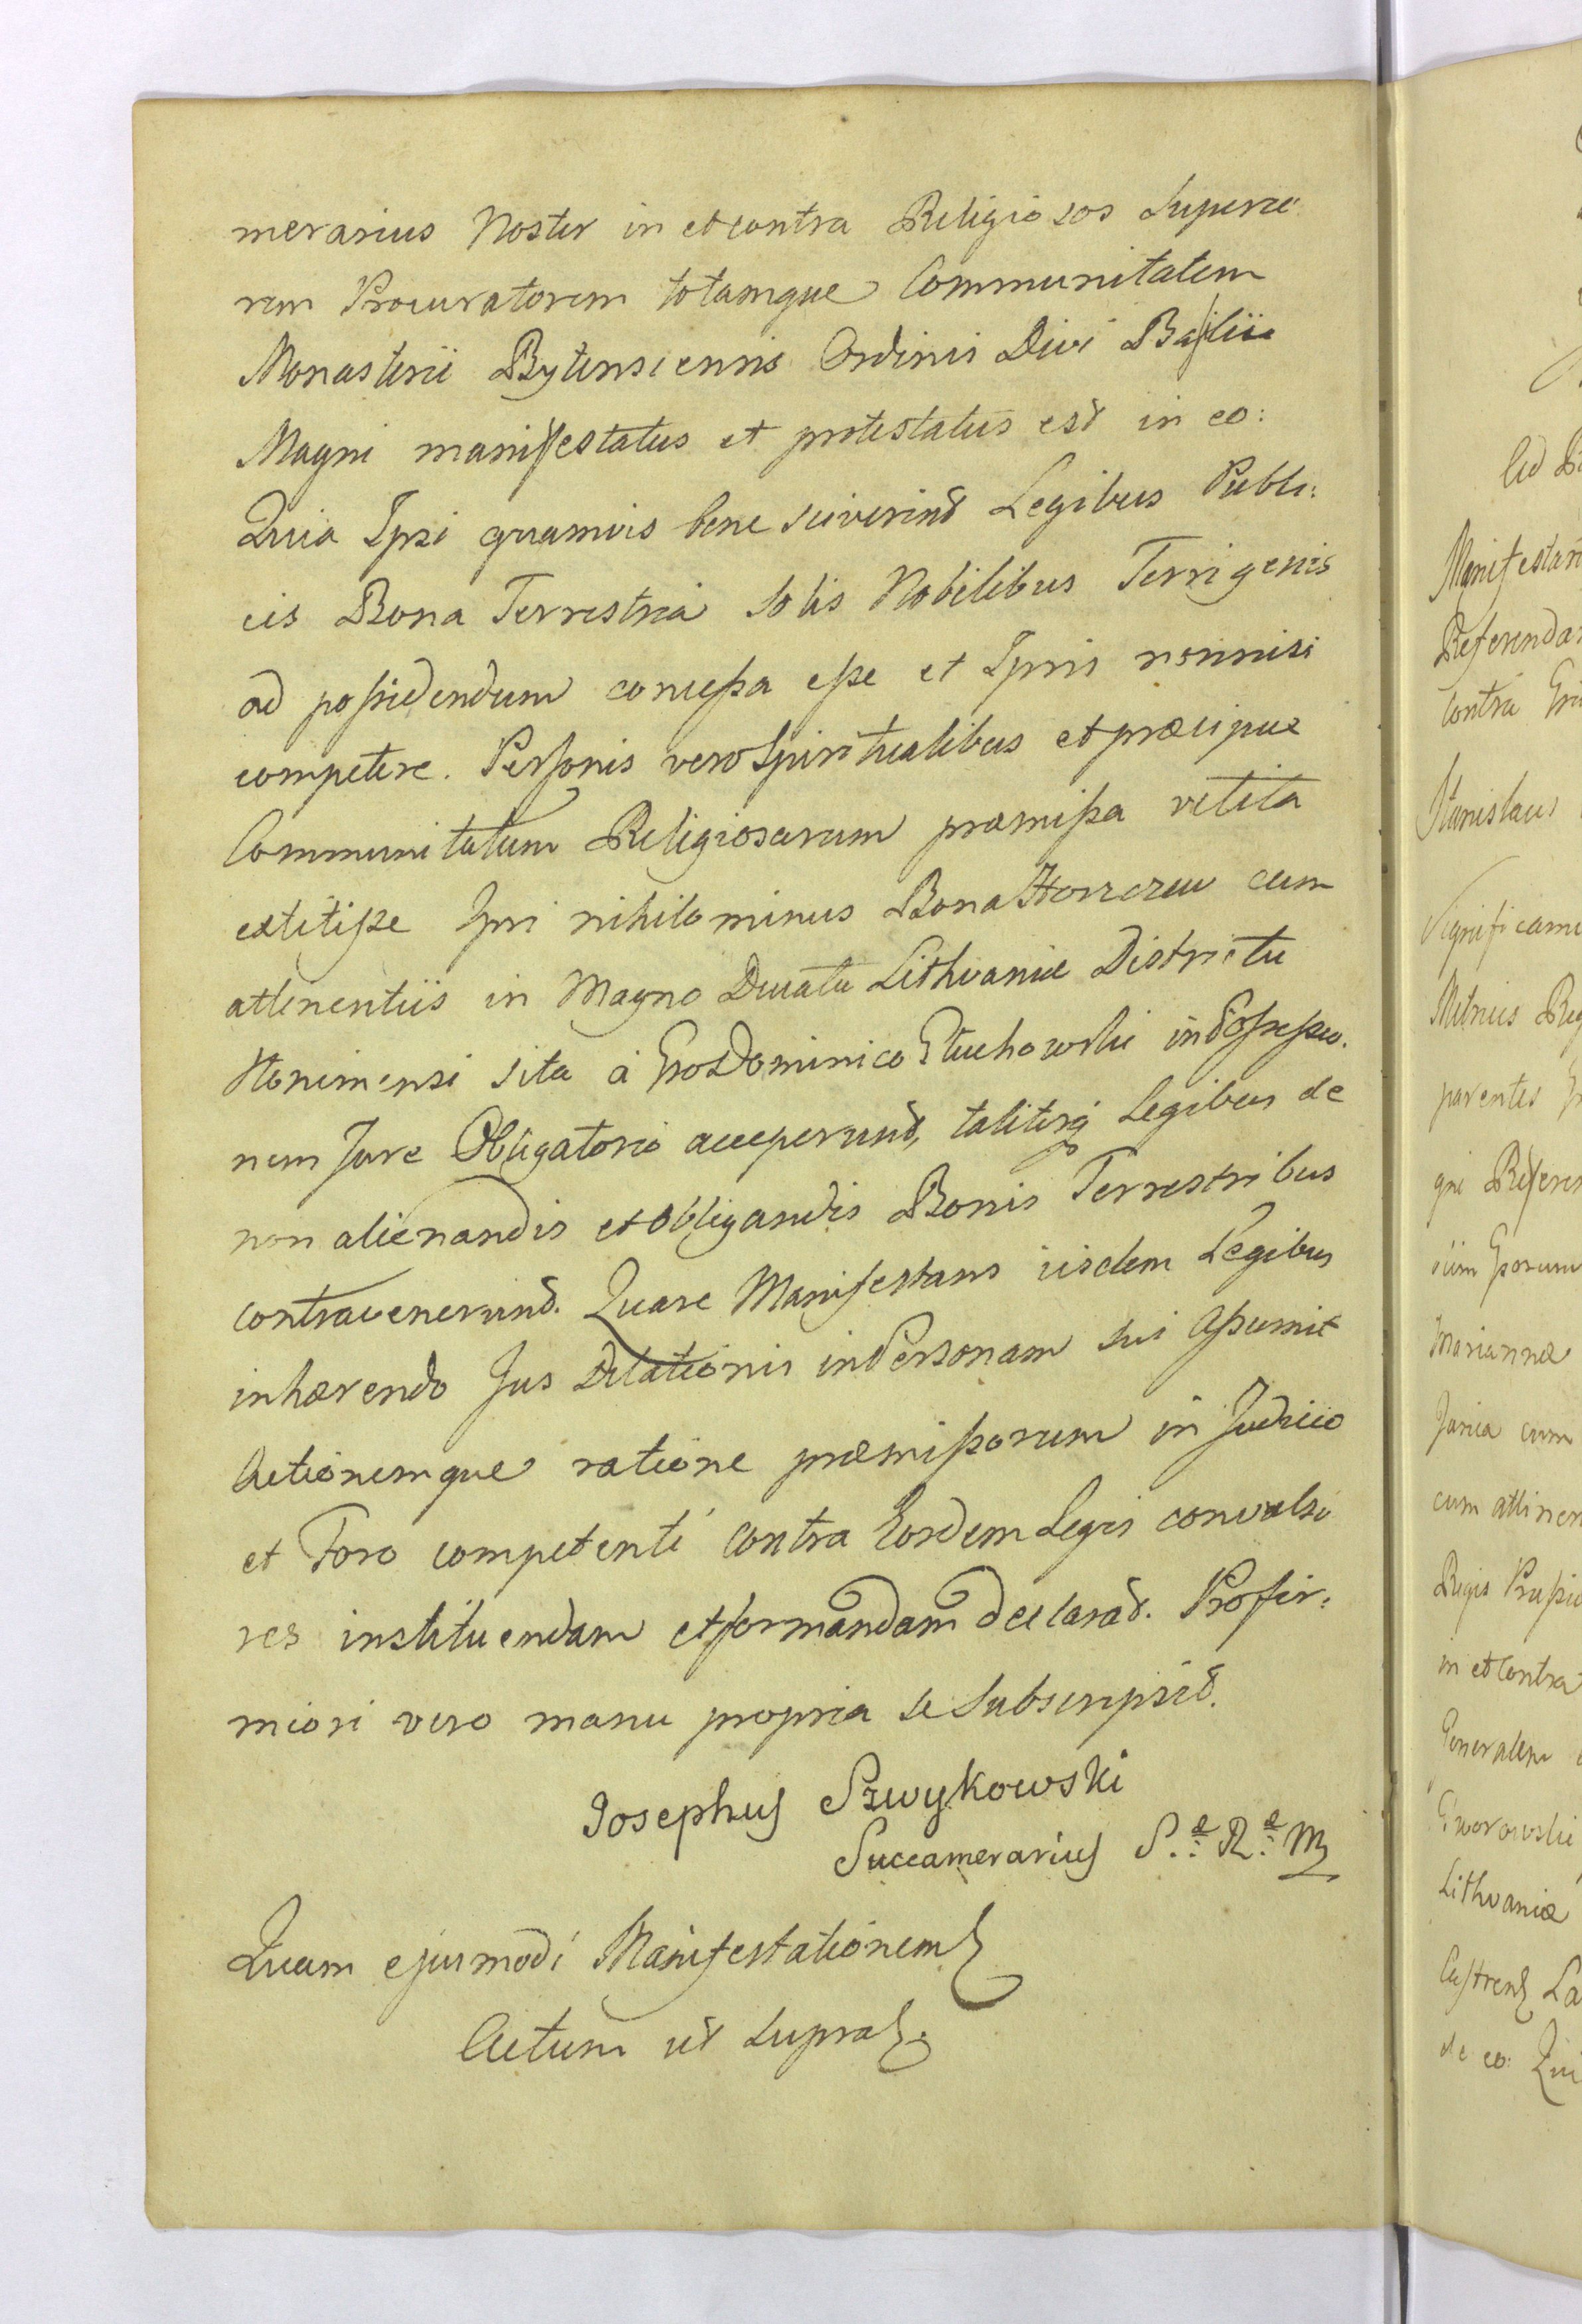 merarius Noster in et contra Religiosos Superio
rem Procuratorem totamque Communitatem
Monasterii Bytensiensis Ordinis Divi Basilii
Magni manifestatus et protestatus est in eo:
Quia Ipsi quamvis bene sciverint Legibus Publi:
cis Bona Terrestria solis Nobilibus Terrigenis
ad possidendum concessa esse et Ipsis nonnisi
competere. Personis vero Spiritualibus et præcipue
Communitatum Religiosarum præmissa vetita
extitisse Ipsi nihilominus Bona cum
attinentiis in Magno Ducatu Lithvaniæ Districtu
Slonimensi sita à Gso Dominico in Possessio.
nem Jure Obligatorio acceperunt, taliterq Legibus de
non alienandis et obligandis Bonis Terrestribus
contravenerunt. Quare Manifestans iisdem Legibus
inhærendo Jus Delationis in Personam sui assumit
Actionemque ratione præmissorum in Judicio
et Foro competenti contra Eosdem Legis convulso
res instituendam et formandam declarat. Pro fir:
miori vero manu propria se subscripsit.
Josephus Szwykowski
Succamerarius S.æ R.æ M
Quam ejusmodi Manifestationem
Actum ut supra.
Manifestan
Referenda:
contra
Stanislaus
Significamu
Metrices Reg
parentes
qui Referen
Marianna
Janica cum
cum attinen
Regis
in et contra
Generalem
Lithvaniæ
Castren La
de eo: Qui